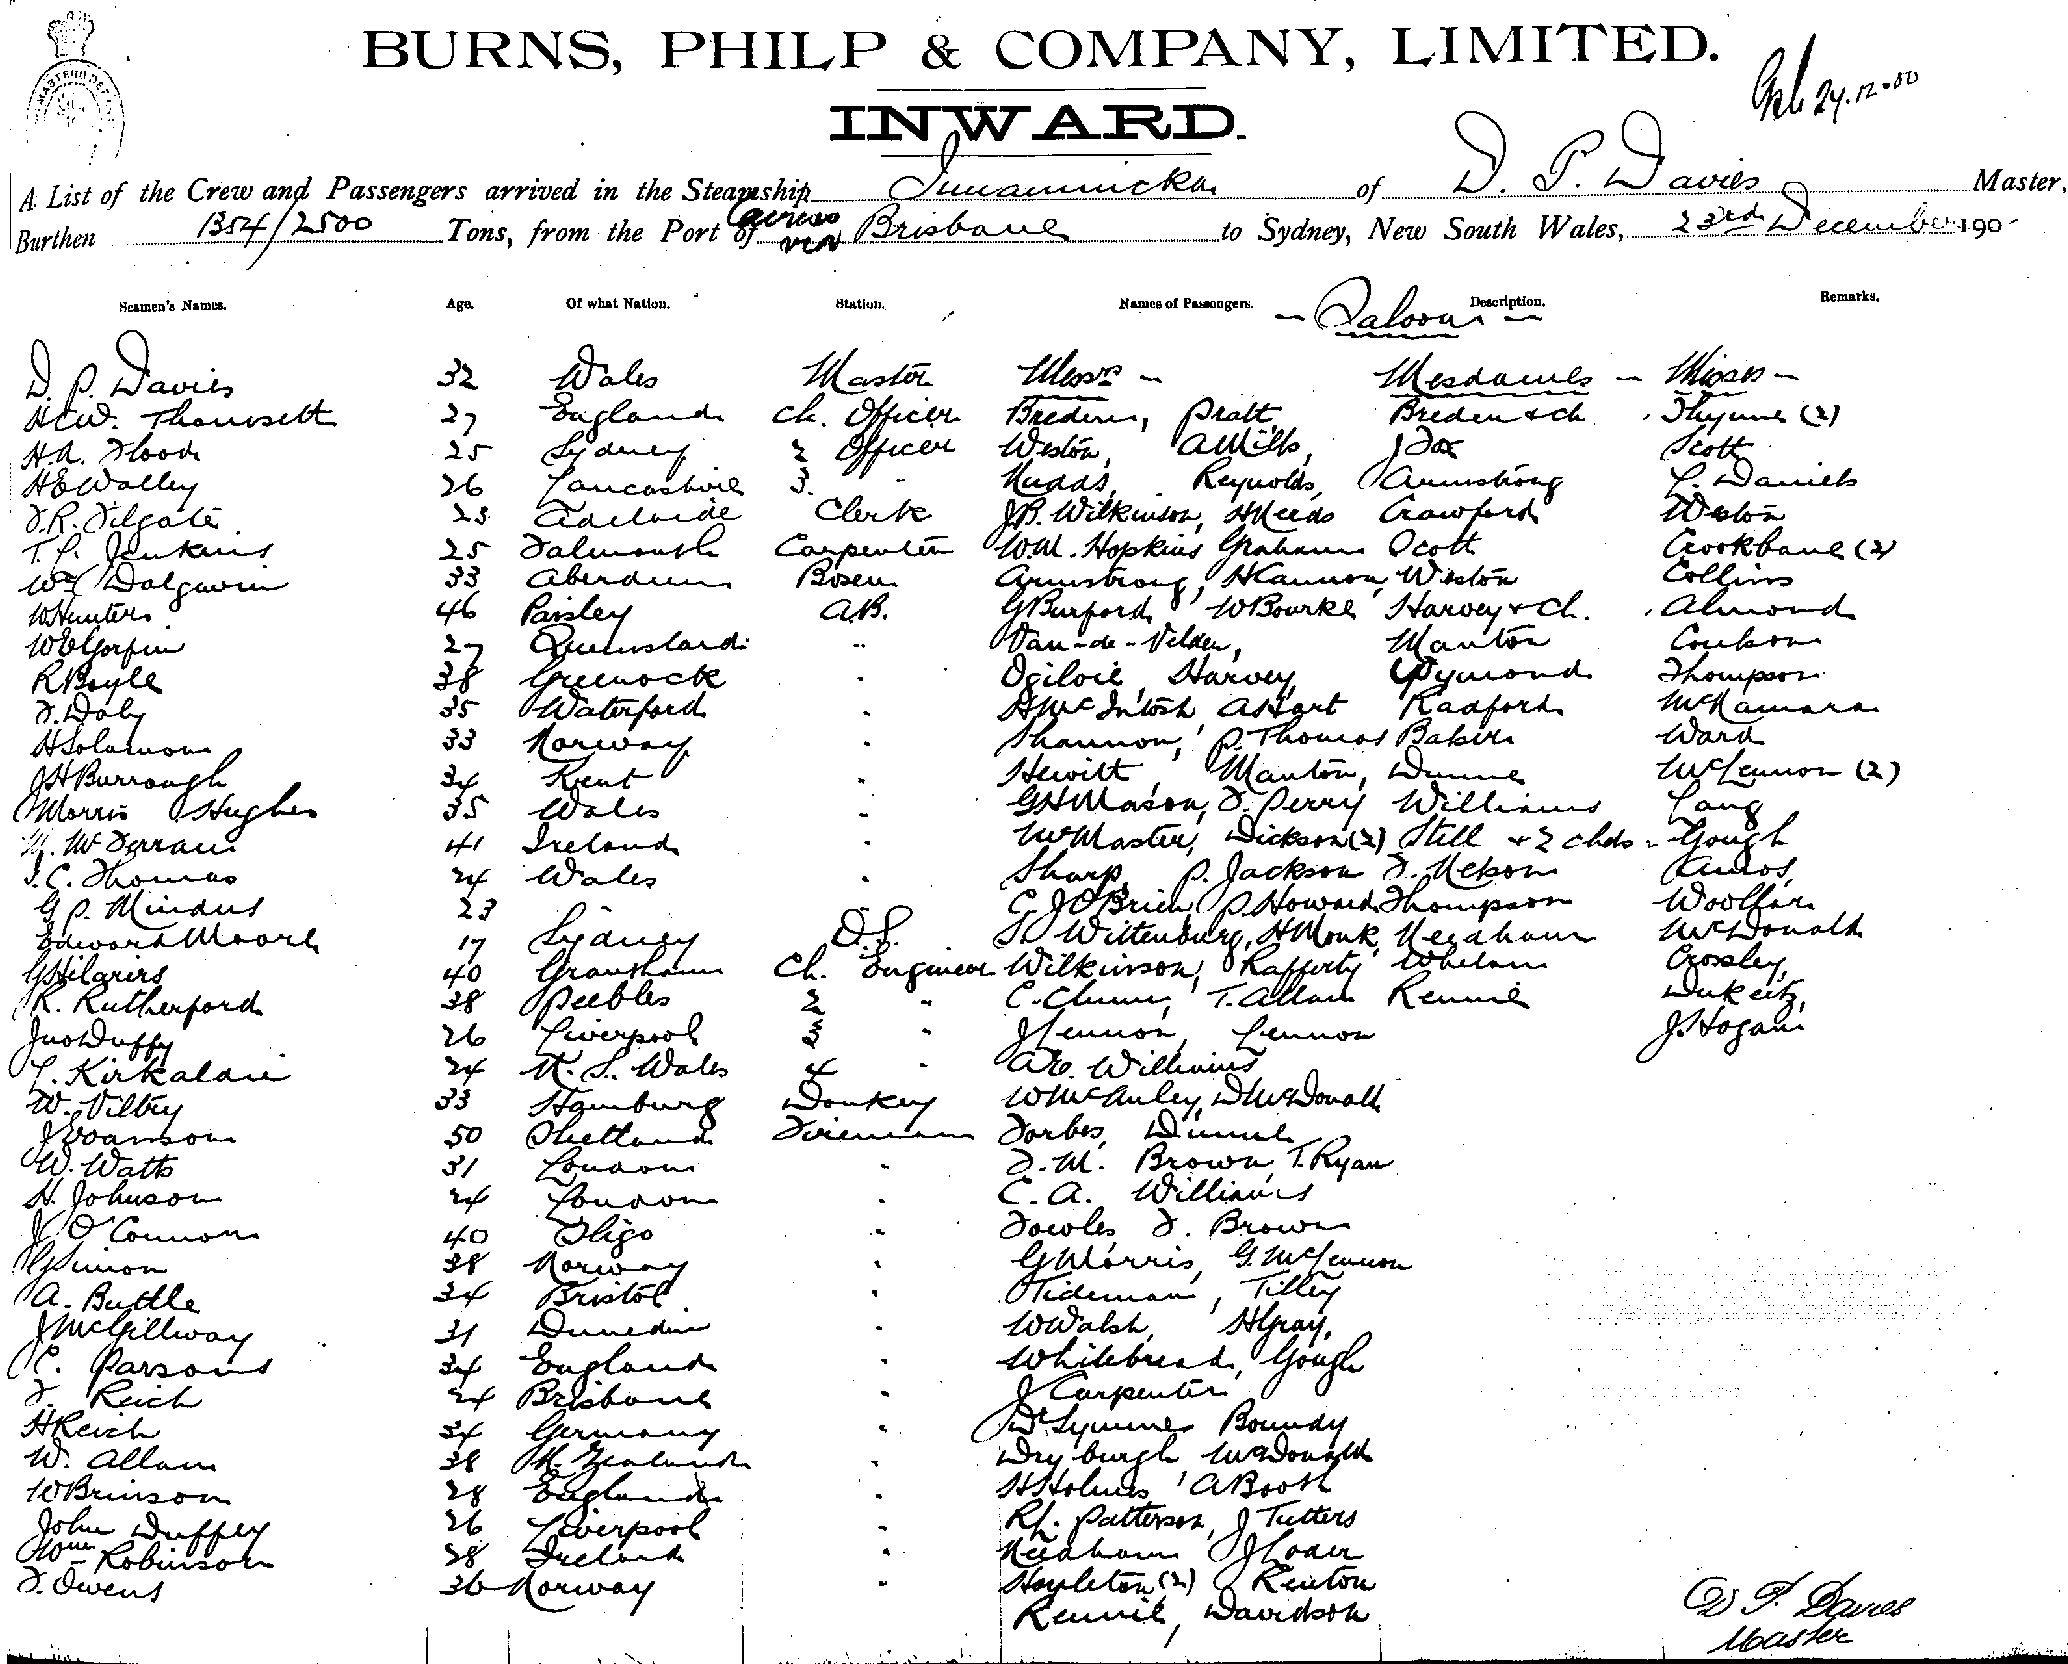 BURNS, PHILP & COMPANY, LIMITED.
24.12.00
INWARD.
A List of the Crew and Passengers arrived in the Steamship Innamincka of D. P. Davies Master,
Burthen 1354/2500 Tons, from the Port of via Brisbane to Sydney, New South Wales, 23rd December 190
Seamen's Names. Age. Of what Nation. Station. Names of Passengers. Description. Remarks.
- Saloon -
D. P. Davies 32 Wales Master Messrs - Mesdames - Misses -
H.C.W. Thomsett 27 England Ch. Officer Breden, Pratt, Breden & ch. Thynne (2)
H.A. Flood 25 Sydney 2 Officer Weston, A Mills, J Fox Scott
H E Walley 26 Lancashire 3. " Nudds, Reynolds, Armstrong L. Daniels
F.R. Filgate 23 Adelaide Clerk J.B. Wilkinson, H Reeds Crawford Weston
T. L. Jenkins 25 Falmouth Carpenter W.M. Hopkins Graham Scott Crookbane (2)
Dalgarin 33 Aberdeen Bosun Armstrong, H Cannon, Weston Collins
W Hunter 46 Paisley A.B. G Burford W Bourke Harvey & Ch. Almond
27 Queensland " Van-de-Velden, Manton Coulson
R Boyle 38 Greenock " Ogilvie, Harvey, Wymond Thompson
F. Daly 35 Waterford " H McIntosh A Hart Radford McNamara
H Solomon 33 Norway " Shannon, P. Thomas Baker Ward
J H Burrough 34 Kent " Hewitt Manton, Dunne McLennon (2)
Morris Hughes 35 Wales " G H Mason, F. Perry Williams Lang
41 Ireland " McMaster, Dickson (2) Still & 2 chds - Gough
J. C. Thomas 24 Wales " Sharp, P. Jackson F. Nelson Amos,
G P. Mindus 23 C J O'Brien, P. Howard Thompson
Edward Moore 17 Sydney O.S. Wittenburg, H Monk, Needham McDonald
G Hilarirs 40 Grantham Ch. Engineer Wilkinson, Rafferty Whelan Crossley,
R. Rutherford 38 Peebles 2 " C. Clunn, T. Allan Rennie
Jno Duffy 26 Liverpool 3 " J Lennon, Lennon J. Hogan
L. Kirkaldie 24 N. S. Wales 4 " Williams
W. Viltry 33 Hamburg Donkey W McAuley, D McDonald
J Swanson 50 Shetland Fireman Forbes, Dunne
W. Watts 31 London " F. M. Brown, T. Ryan
H. Johnson 24 London " C. A. Williams
J O'Connor 40 Sligo " Fowles, F. Brown
G Simon 38 Norway " G Morris, G. McLennon
A. Buttle 34 Bristol " Tideman, Tilley
J McGillway 31 Dunedin " W Walsh, H Gray,
C. Parsons 34 England " Whitebread, Gough
F. Reich 24 Brisbane " J Carpenter
H Reich 34 Germany " Dr Symmes Boundy
W. Allan 38 N. Zealand " Dryburgh McDonald
W Brinson 28 England " H Holmes A Booth
John Duffey 26 Liverpool " Patterson, J Tutters
Wm Robinson 28 Ireland " Needham J Loder
F. Owens 36 Norway " Hoyleton (2) Renton
Rennie, Davidson
D P. Davies
Master